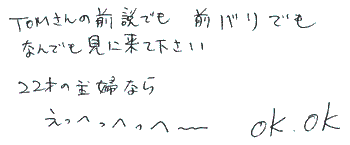 TOMさんの前説でも 前バリでも
なんでも見に来て下さい
22才の主婦なら
えっへっへっへ〜 OK.OK